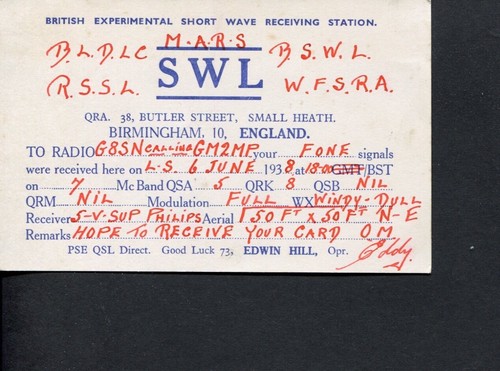 BRITISH EXPERIMENTAL SHORT WAVE RECEIVING STATION.
B.L.D.L.C M.A.R.S B.S.W.L.
R.S.S.L. SWL W.F.S.R.A.
QRA. 38, BUTLER STREET, SMALL HEATH.
BIRMINGHAM, 10, ENGLAND.
TO RADIO G8SN CALLING GM2MP your FONE signals
were received here on L.S. 6 JUNE 1938 at 18:00 GMT/BST
on 7 Mc Band QSA 5 QRK 8 QSB NIL
QRM NIL Modulation FULL WX WINDY-DULL
Receiver 5-V-SUP PHILIPS Aerial 150 FT X 50 FT N-E
Remarks HOPE TO RECEIVE YOUR CARD OM
PSE QSL Direct. Good Luck 73, EDWIN HILL, Opr. Eddy.